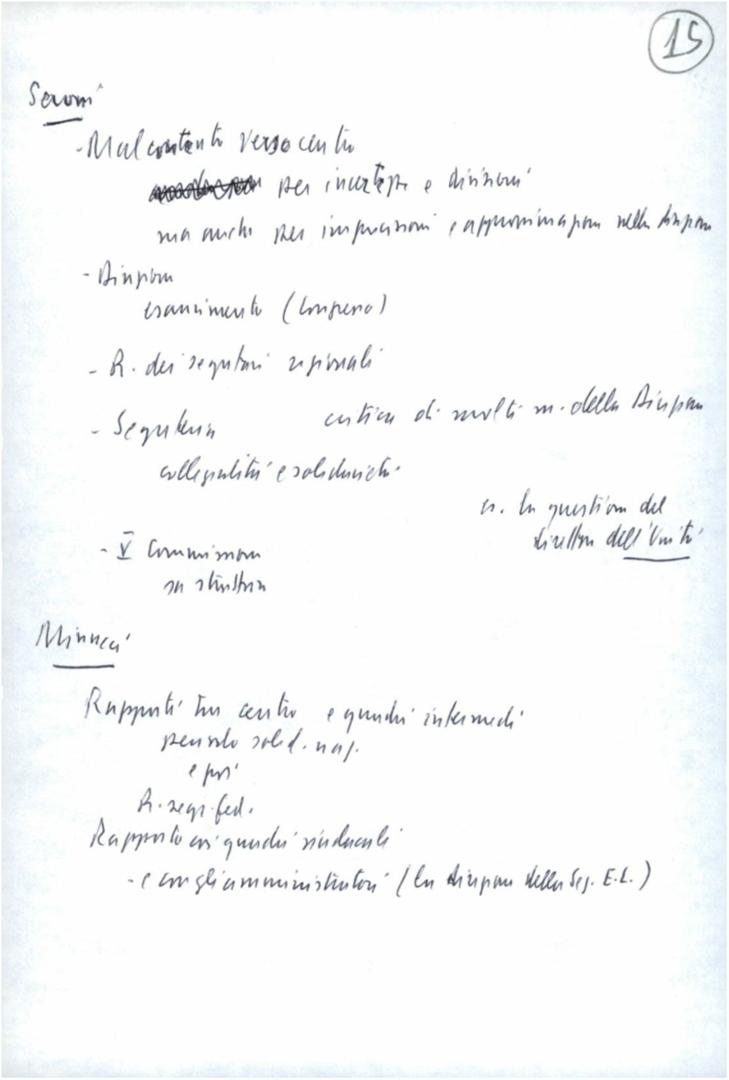 15
Seroni
- Malcontento verso centro
per incertezze e divisioni
ma anche per imprecisioni e approssimazioni nella direzione
- Direzione
esaurimento (Congresso)
- R. dei segretari regionali
- Segreteria critica di molti m. della Direzione
collegialità e solidarietà
es. la questione del
direttore dell'Unità
- V Commissione
su struttura
Minucci
Rapporti tra centro e quadri intermedi
periodo solid. naz.
e poi
R. segr. fed.
Rapporto coi quadri sindacali
- e con gli amministratori (la direzione della Sez. E.L.)